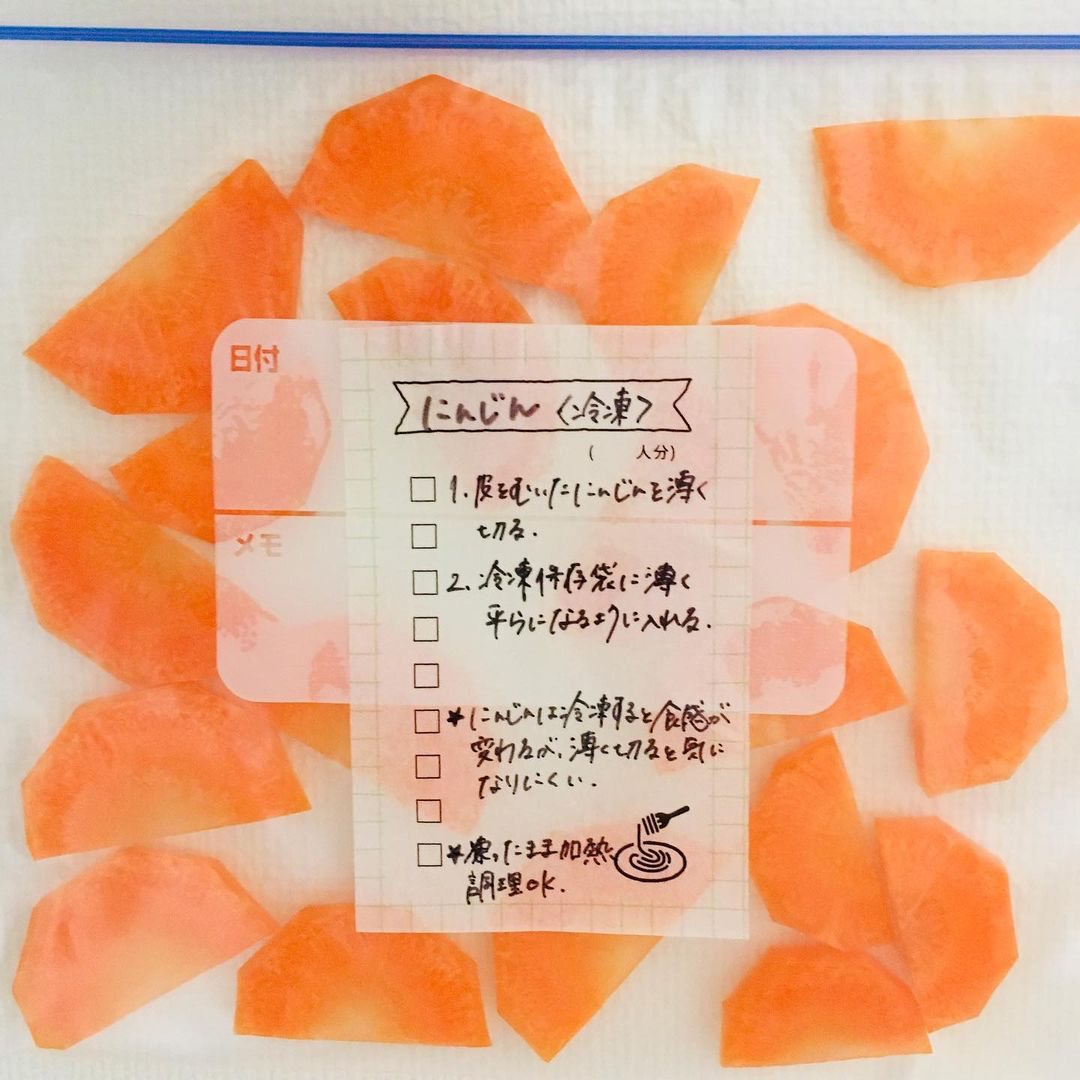 日付
にんじん〈冷凍〉
( 人分)
1. 皮をむいたにんじんを薄く
切る.
メモ
2. 冷凍保存袋に薄く
平らになるように入れる.
*にんじんは冷凍すると食感が
変わるが、薄く切ると気に
なりにくい.
*凍ったまま加熱、
調理OK.